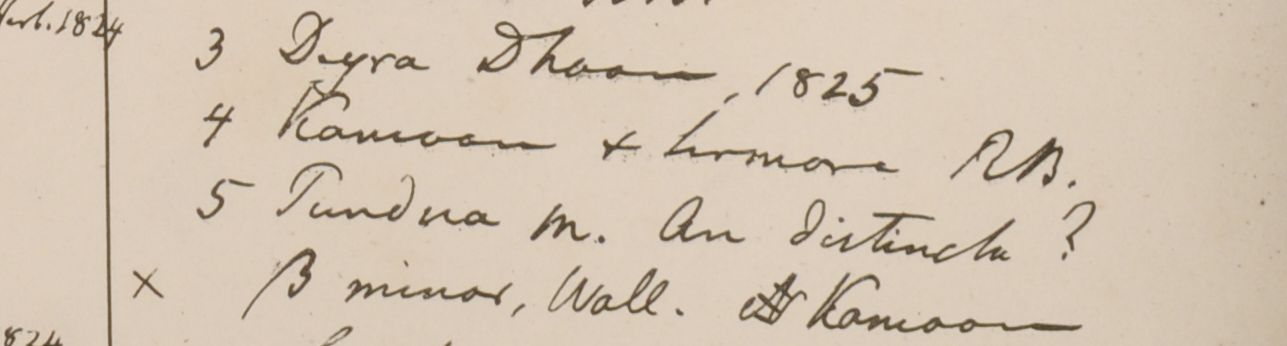 Herb. 1824
3 Deyra Dhoon, 1825
4 Kamoon & Sirmore RB.
5 Tundua m. An distincta?
× β minor, Wall. Kamoon
1824